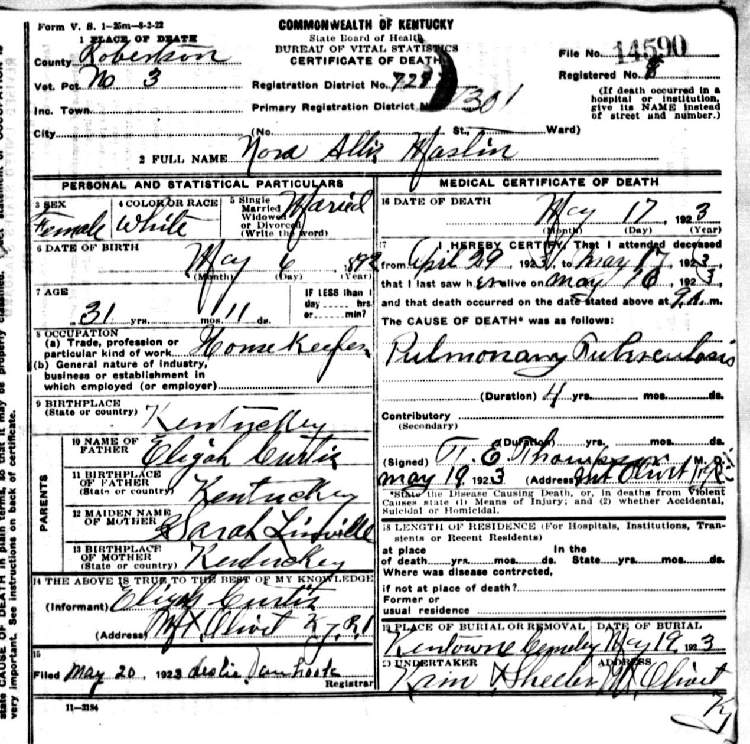 Form V. S. 1-25m-8-2-22
COMMONWEALTH OF KENTUCKY
State Board of Health
BUREAU OF VITAL STATISTICS
CERTIFICATE OF DEATH
1 PLACE OF DEATH
County Robertson
Vot. Pct No 3
Inc. Town
City
Registration District No. 728
Primary Registration District No 7301
(No. St., Ward)
File No. 14590
Registered No. 8
(If death occurred in a
hospital or institution,
give its NAME instead
of street and number.)
2 FULL NAME Nora Allie Haslin
PERSONAL AND STATISTICAL PARTICULARS
3 SEX
Female
4 COLOR OR RACE
White
5 Single
Married
Widowed
or Divorced
(Write the word)
Maried
6 DATE OF BIRTH
May 6 1892
(Month) (Day) (Year)
7 AGE
31 yrs. mos. 11 ds.
IF LESS than 1
day hrs.
or min?
8 OCCUPATION
(a) Trade, profession or
particular kind of work House Keeper
(b) General nature of industry,
business or establishment in
which employed (or employer)
9 BIRTHPLACE
(State or country) Kentuckey
PARENTS
10 NAME OF
FATHER Elijah Curtis
11 BIRTHPLACE
OF FATHER
(State or country) Kentuckey
12 MAIDEN NAME
OF MOTHER Sarah Linville
13 BIRTHPLACE
OF MOTHER
(State or country) Kentuckey
14 THE ABOVE IS TRUE TO THE BEST OF MY KNOWLEDGE
(Informant) Elijah Curtis
(Address) Mt Olivet Ky R1
15
Filed May 20, 1923 Leslie Vanhook
Registrar
11-3184
MEDICAL CERTIFICATE OF DEATH
16 DATE OF DEATH
May 17, 1923
(Month) (Day) (Year)
17 I HEREBY CERTIFY, That I attended deceased
from April 29, 1923, to May 17, 1923,
that I last saw her alive on May 16, 1923,
and that death occurred on the date stated above at m.
The CAUSE OF DEATH* was as follows:
Pulmonary Tuberculosis
(Duration) 4 yrs. mos. ds.
Contributory
(Secondary)
(Duration) yrs. mos. ds.
(Signed) T. E. Thompson M. D.
May 19, 1923 (Address) Mt Olivet Ky
*State the Disease Causing Death, or, in deaths from Violent
Causes state (1) Means of Injury; and (2) whether Accidental,
Suicidal or Homicidal.
18 LENGTH OF RESIDENCE (For Hospitals, Institutions, Tran-
sients or Recent Residents)
at place In the
of death yrs. mos. ds. State yrs. mos. ds.
Where was disease contrcted,
if not at place of death?
Former or
usual residence
19 PLACE OF BURIAL OR REMOVAL DATE OF BURIAL
Kentowne Cemetey May 19, 1923
20 UNDERTAKER ADDRESS
Kain & Sheeler Mt Olivet
Ky
state CAUSE OF DEATH in plain terms so that it may be properly classified.
very important. See instructions on back of certificate.